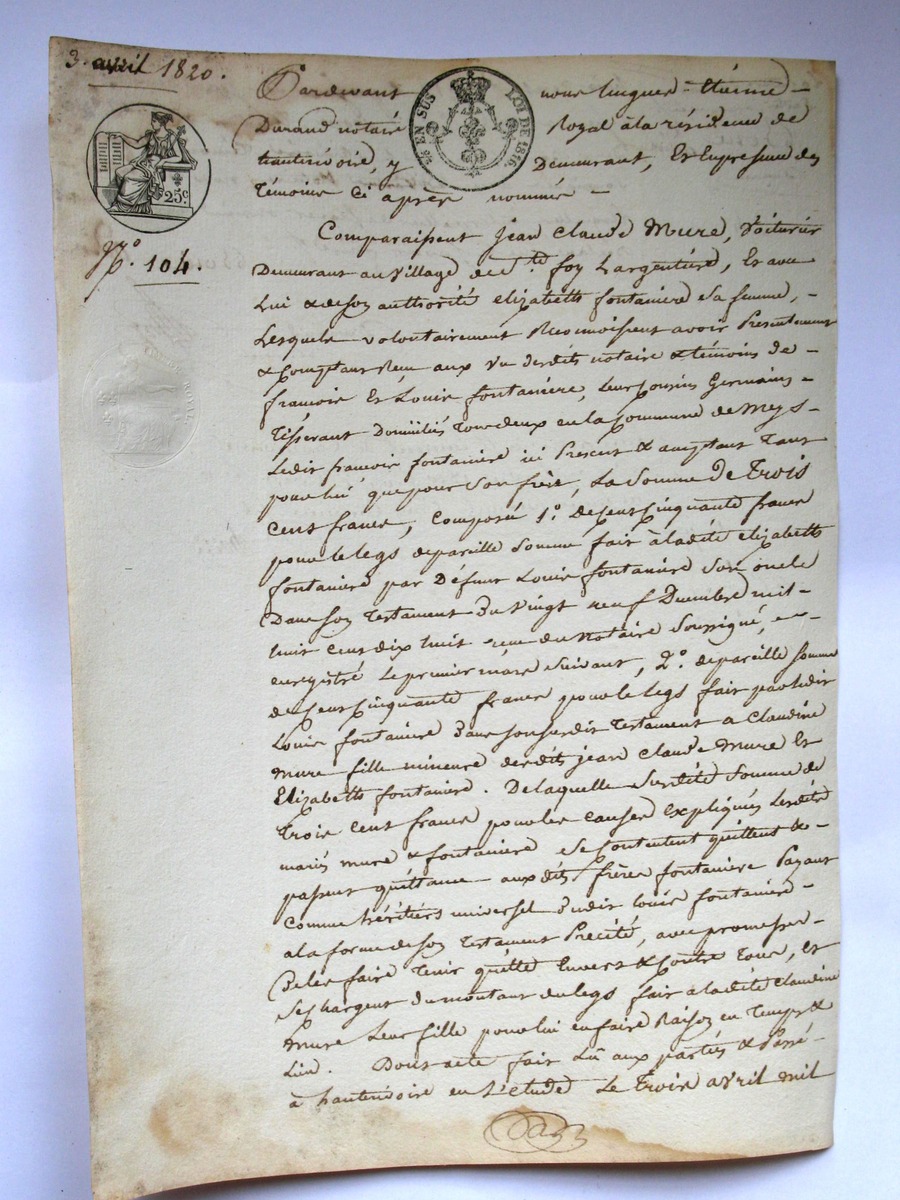 3. avril 1820.
25c.
¼ EN SUS LOI DE 1816.
N.° 104.
Pardevant nous hugues-Étienne
Durand notaire Royal à la résidence de
hauterivoire, y Demeurant, Et En presence des
témoins Ci après nommés
Comparaissent jean Claude Mure, Voiturier
Demeurant au Village de S.te foy Largentière, Et avec
Lui & de son authorité elizabeth fontaniere sa femme,
Lesquels volontairement Reconnoissent avoir Presentement
& Comptant Reçu aux vu desdits notaire & témoins de
francois Et Louis fontanière, Leurs Cousins Germains
tisserant Domiciliés tous deux en la Commune de Meys
Ledit francois fontaniere ici Present & acceptant tant
pour lui que pour Son frère, La Somme de trois
Cent francs, Composé 1.° de Cent Cinquante francs
pour le legs de pareille Somme fait à ladite elizabeth
fontaniere par Défunt Louis fontaniere Son oncle
Dans son testament du vingt neuf Decembre mil
huit Cent dix huit reçu du Notaire Soussigné, en-
enregistré Le premier mars Suivant, 2.° de pareille Somme
de Cent Cinquante francs pour le legs fait par ledit
Louis fontaniere dans son susdit testament a Claudine
Mure fille mineure desdits jean Claude Mure Et
Elizabeth fontaniere. De laquelle Susdite Somme de
trois Cent francs pour les Causes Expliquées Lesdits
mariés mure & fontaniere se Contentent quittent &
passent quittance auxdits frères fontaniere Payant
Comme héritiers universel dudit Louis fontaniere
a la forme de son testament Précité, avec promesse
De les faire tenir quitte Envers & Contre tous, Et
se Chargent du montant du legs fait a ladite Claudine
Mure Leur fille pour lui en faire Raison en temps &
Lieu. Dont acte fait Lû aux parties & Passé
à hauterivoire en L'étude Le trois avril mil